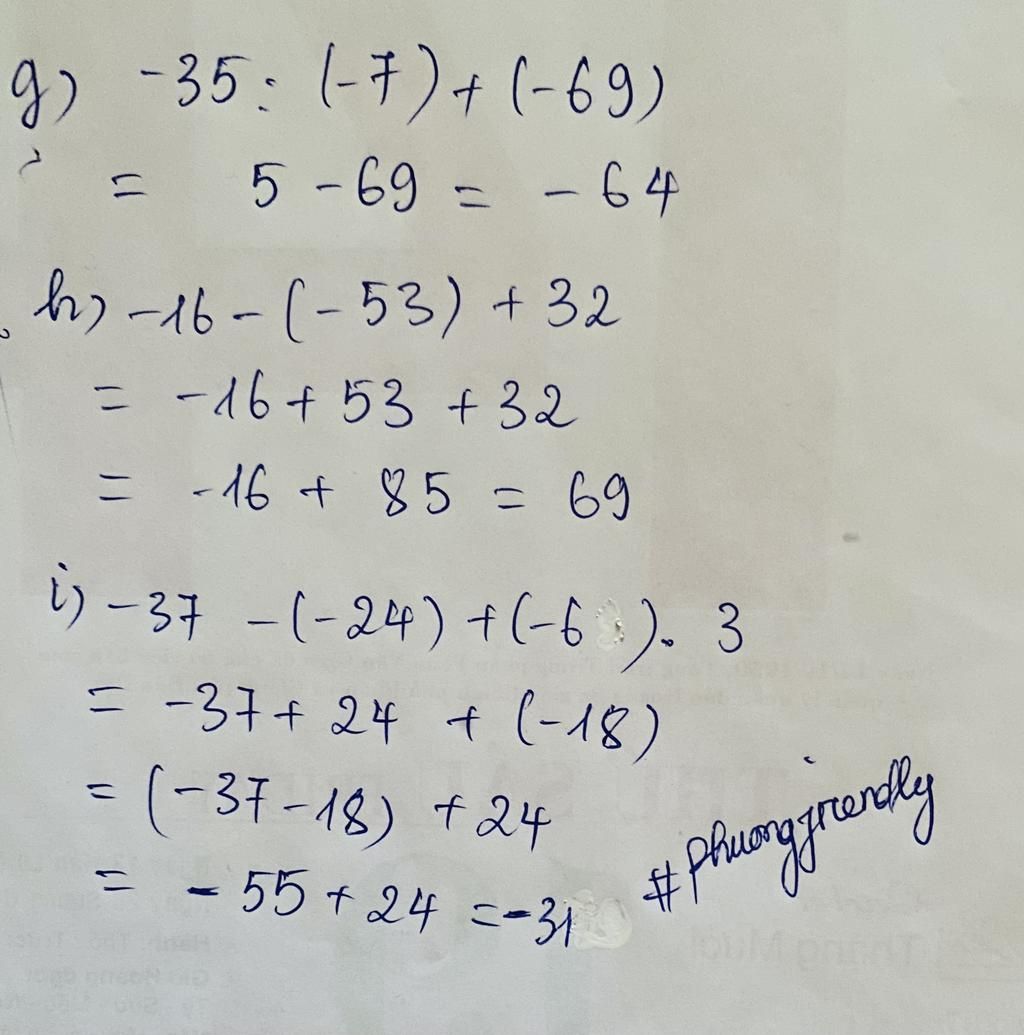 g) -35 : (-7) + (-69)
= 5 - 69 = - 64
h) -16 - (-53) + 32
= -16 + 53 + 32
= -16 + 85 = 69
i) -37 - (-24) + (-6). 3
= -37 + 24 + (-18)
= (-37 - 18) + 24
= - 55 + 24 = -31
#phuongfriendly